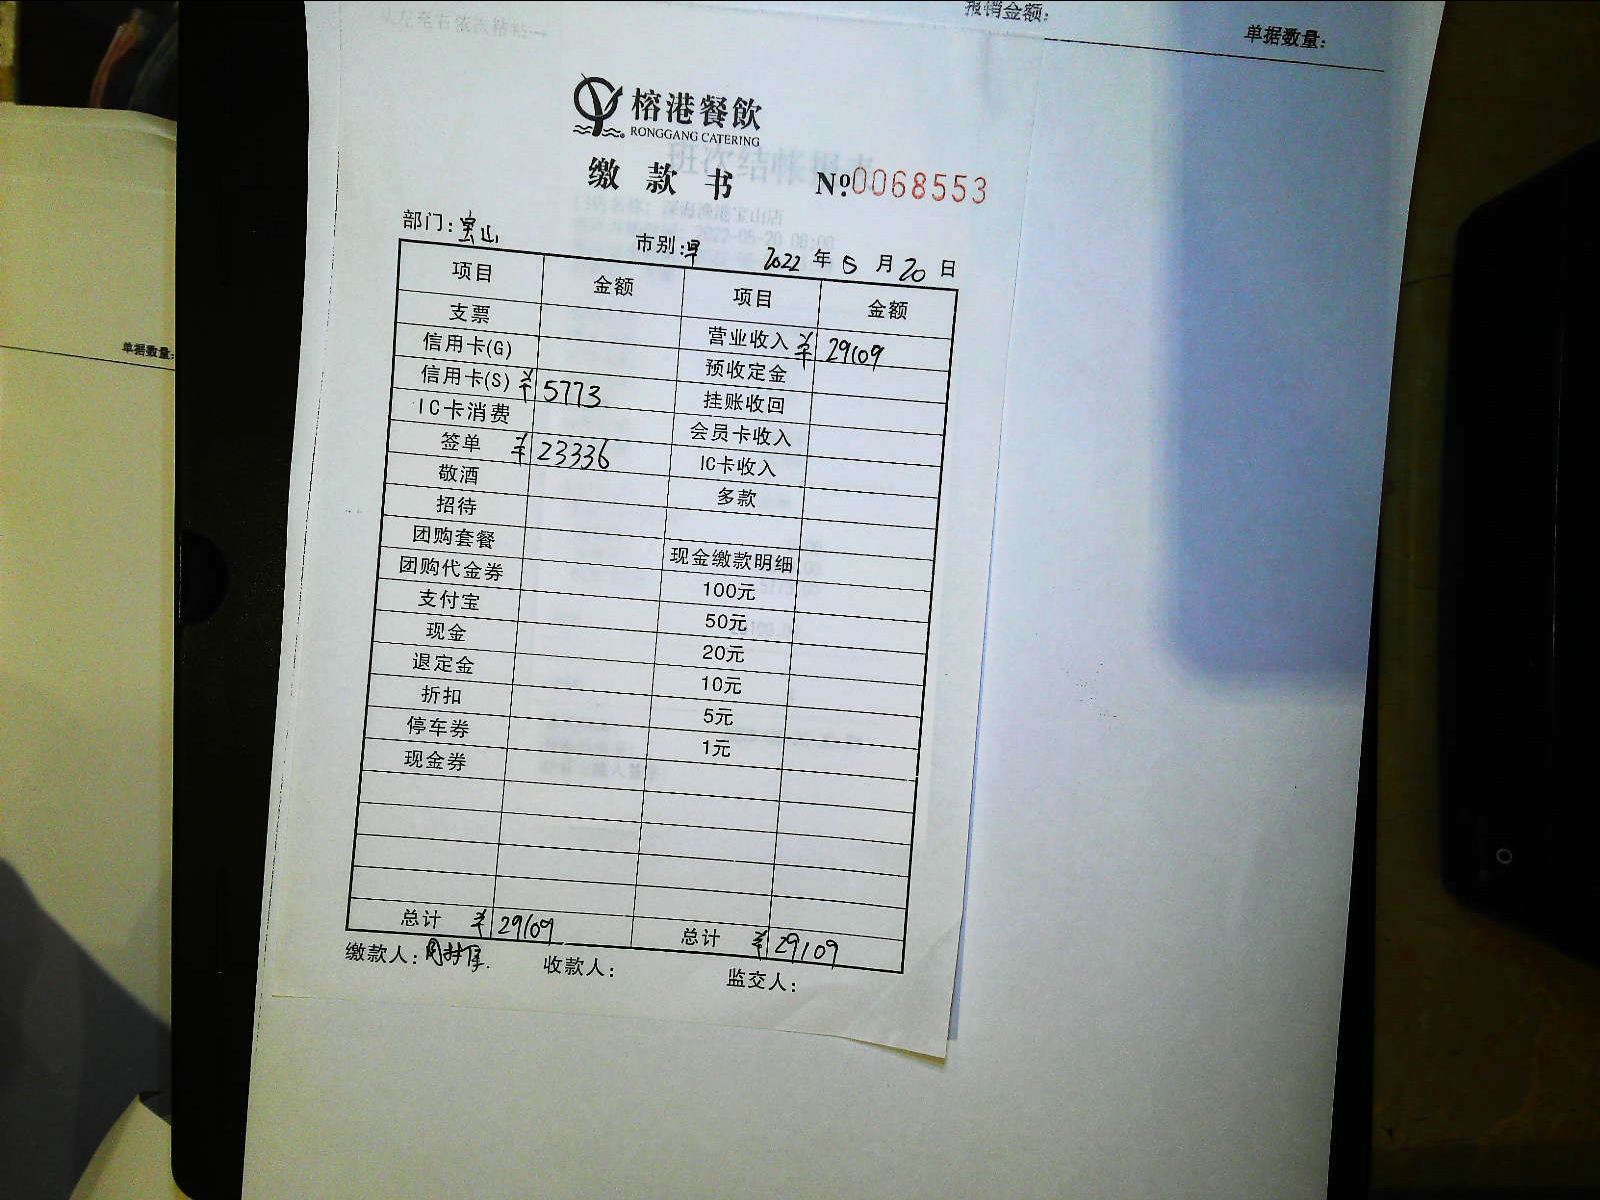 从左至右依次粘贴→
报销金额:
单据数量:
榕港餐飲
RONGGANG CATERING
缴款书 №0068553
部门:宝山 市别:早 2022年5月20日
项目 金额 项目 金额
支票 营业收入 ¥29109
信用卡(G) 预收定金
信用卡(S) ¥5773 挂账收回
IC卡消费 会员卡收入
签单 ¥23336 IC卡收入
敬酒 多款
招待
团购套餐 现金缴款明细
团购代金券 100元
支付宝 50元
现金 20元
退定金 10元
折扣 5元
停车券 1元
现金券
总计 ¥29109 总计 ¥29109
缴款人: 收款人: 监交人:
单据数量:
班次结帐报表
深海渔港宝山店
2022-05-20 06:00